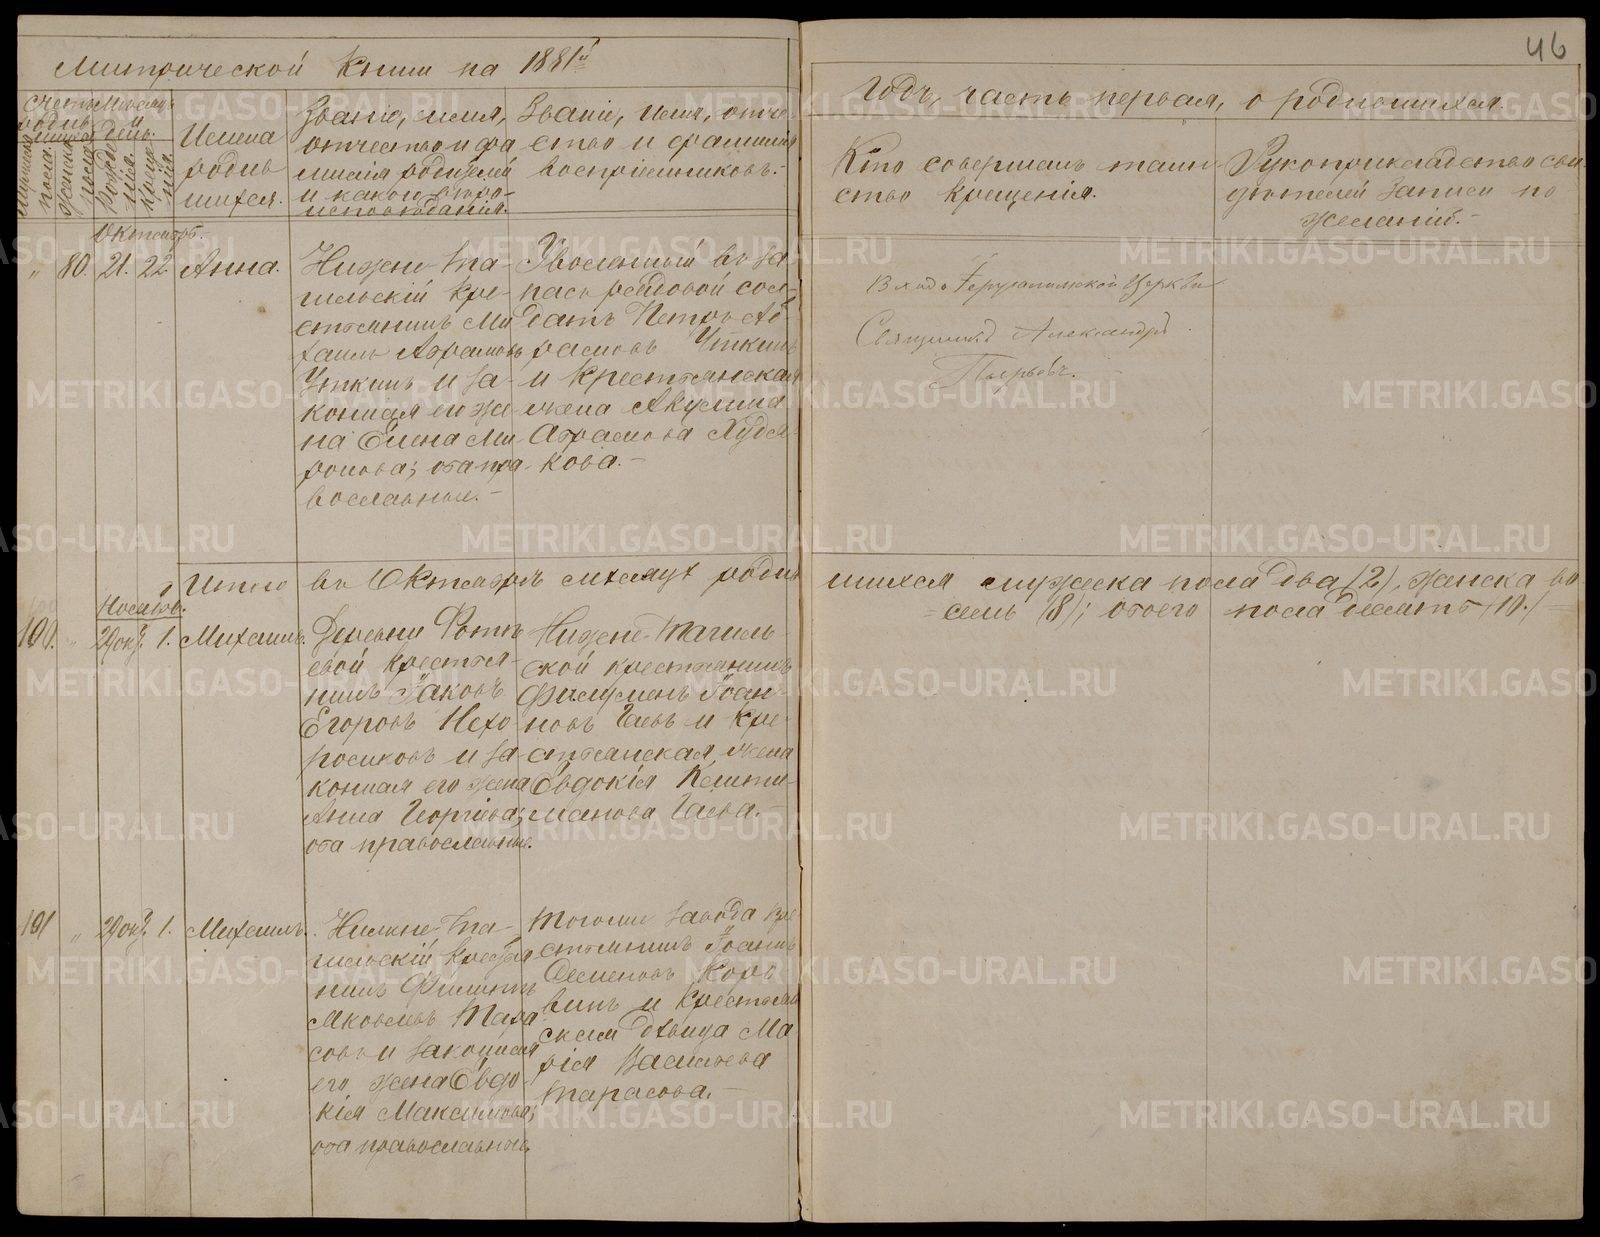 46
Метрической книги на 1881й
Годъ, часть первая, о родившихся.
Счетъ родившихся
Мужеска пола.
Женска пола
Месяцъ и день.
Рожденія.
Крещенія.
Имена родившихся.
Званіе, имя,
отчество и фа-
милія родителей
и какого вѣро-
исповѣданія.
Званіе, имя, отче-
ство и фамилія
воспріемниковъ.
Кто совершалъ таин-
ство крещенія.
Рукоприкладство сви-
дѣтелей записи по
желанію.
Октябрь.
" 80. 21. 22. Анна.
Нижне-Та-
гильскій кре-
стьянинъ Ми-
хаилъ Абрамовъ
Уткинъ и за-
конная его же-
на Елена Ми-
ронова; оба пра-
вославные.
Уволенный въ за-
пасъ рядовой сол-
датъ Петръ Аб-
рамовъ Уткинъ
и крестьянская
жена Акулина
Абрамова Худоя-
рова.
Входо-Іерусалимской Церкви
Священникъ Александръ
Итого въ Октябрѣ месяцѣ родив-
шихся мужеска пола два (2), женска во-
семь (8); обоего пола десять (10.)
Ноябрь.
100. " 29 окт. 1. Михаилъ.
Деревни Фоти-
евой крестья-
нинъ Іаковъ
Егоровъ Нехо-
рошковъ и за-
конная его жена
Анна Георгіева;
оба православные.
Нижне-Тагиль-
ской крестьянинъ
Филумонъ Іоан-
новъ Гаевъ и кре-
стьянская жена
Евдокія
Гаева.
101 " 29 окт. 1. Михаилъ.
Нижне-Та-
гильскій крестья-
нинъ Филиппъ
Яковлевъ Тара-
совъ и законная
его жена Евдо-
кія Максимова;
оба православные.
Тогоже завода кре-
стьянинъ Іоаннъ
Семеновъ Коро-
винъ и крестьян-
ская дѣвица Ма-
рія Васильева
Тарасова.
METRIKI.GASO-URAL.RU